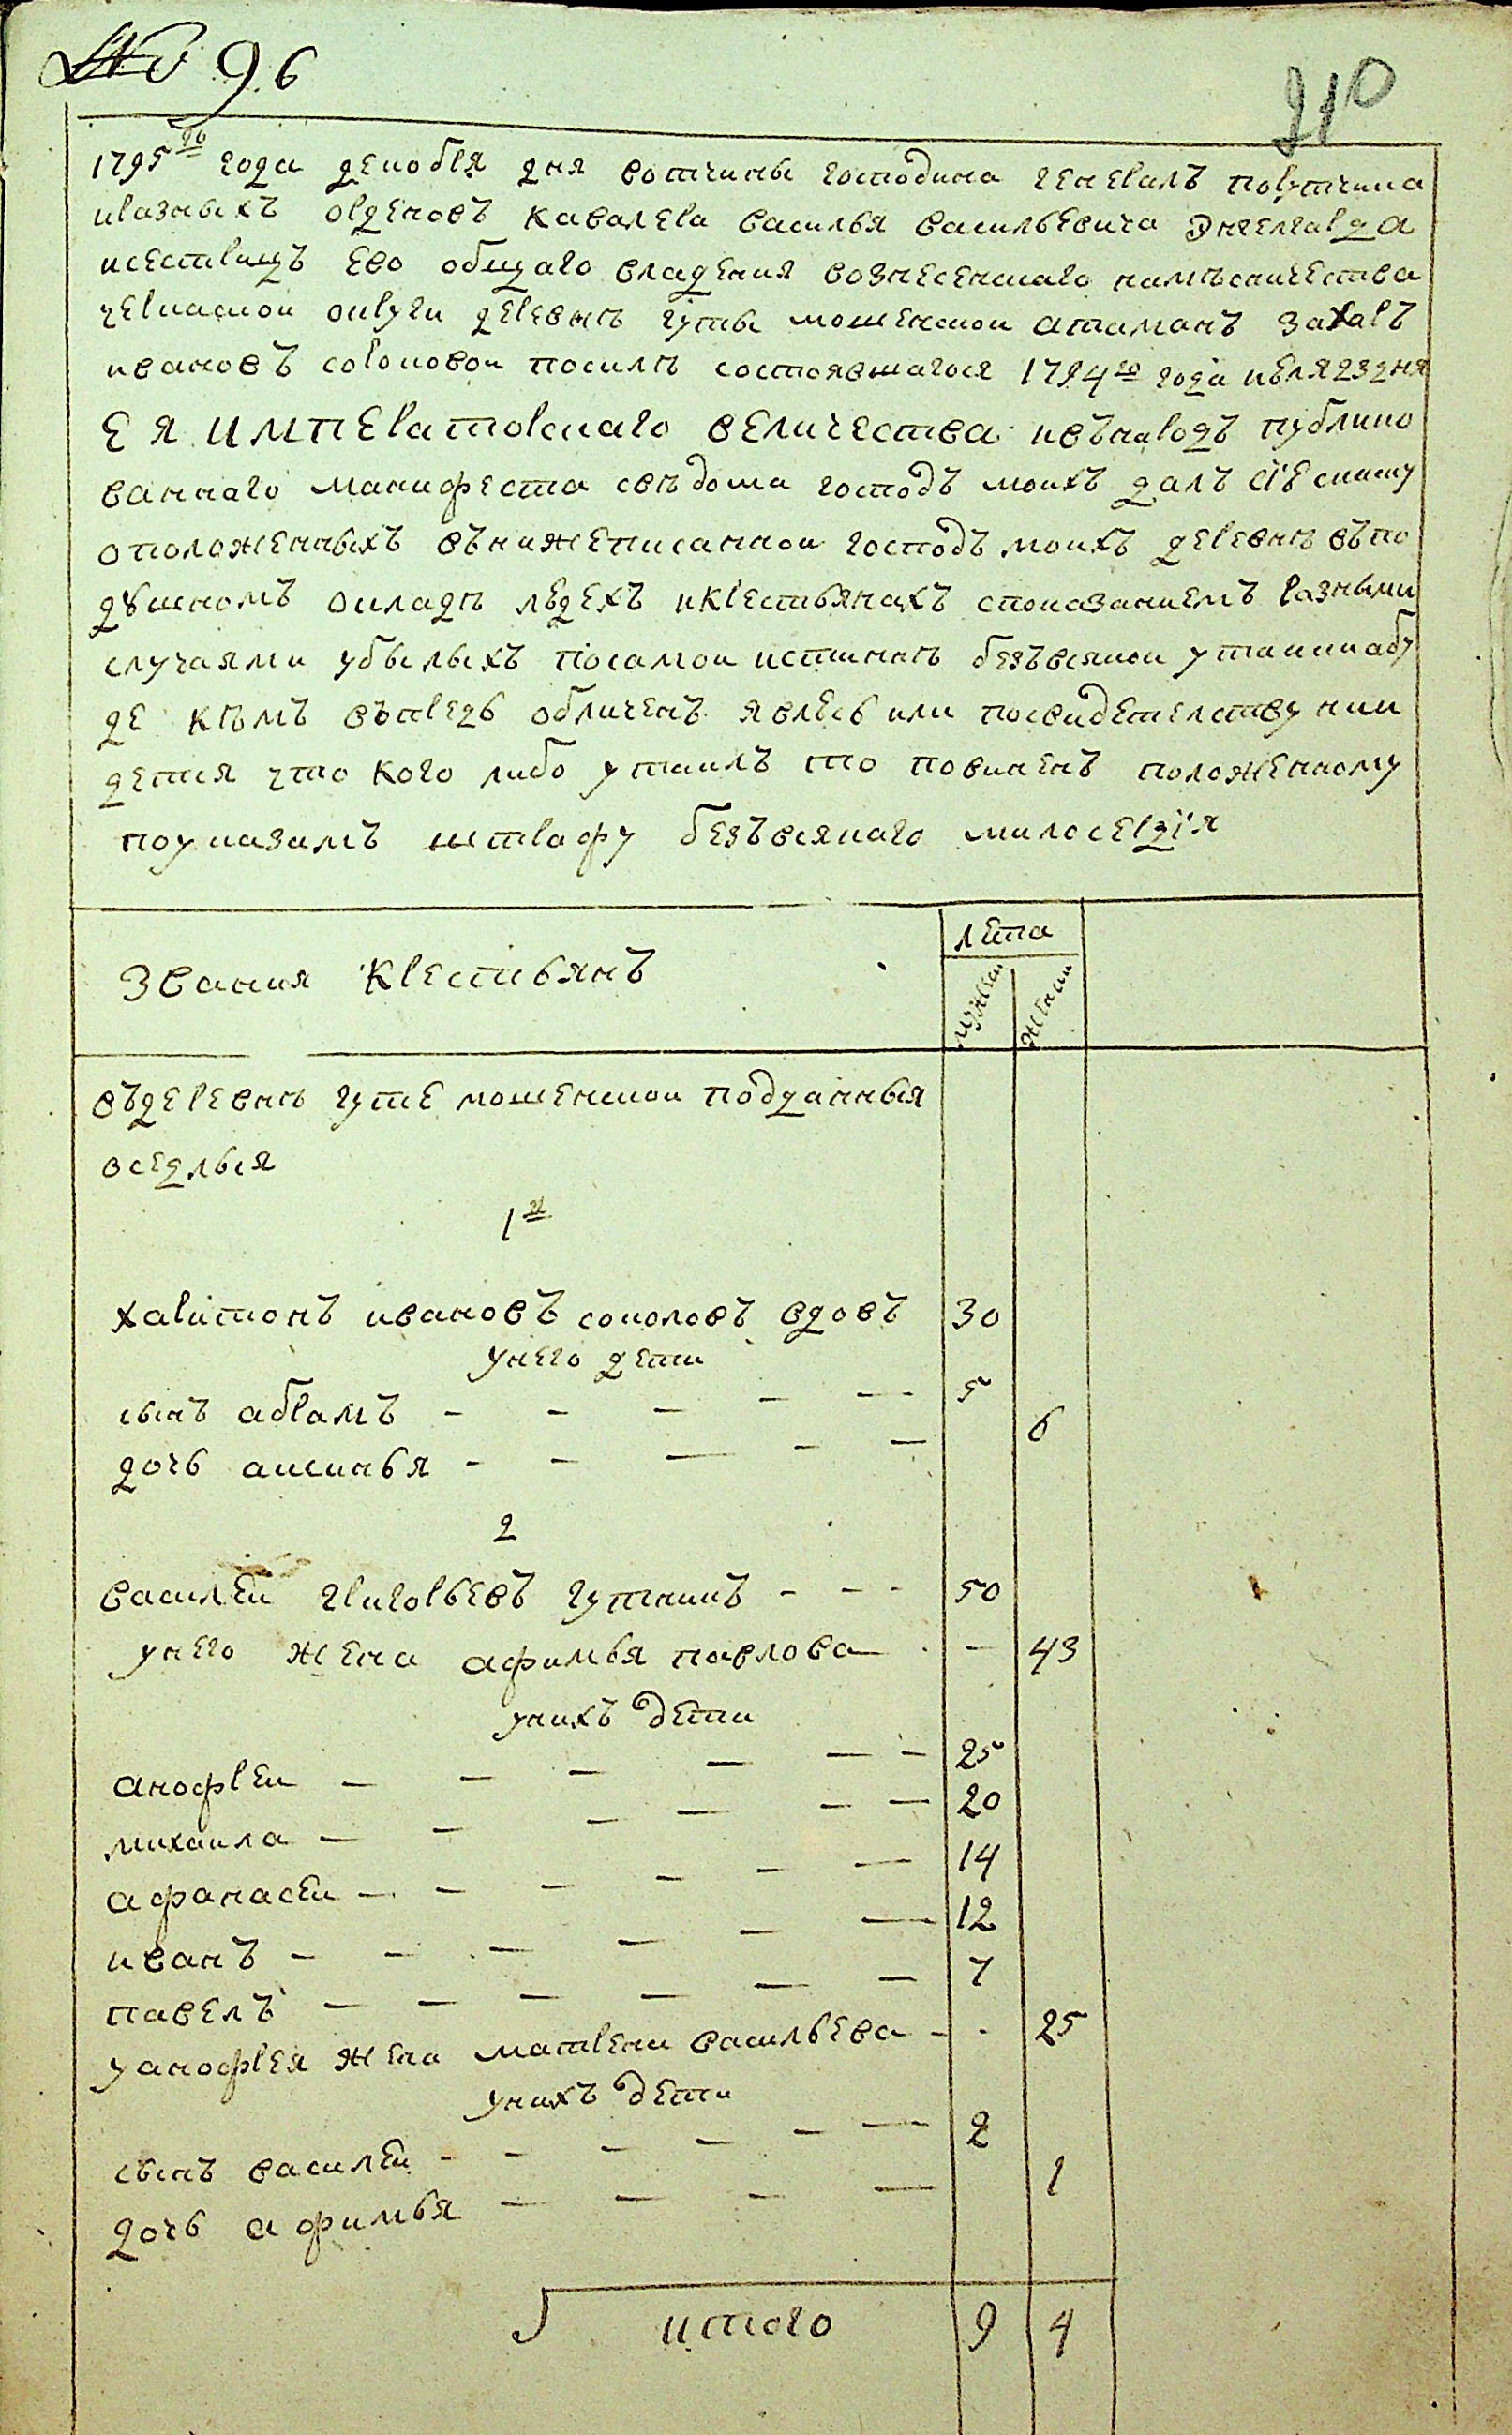 № 96
210
1795го года декабря дня вотчины господина генералъ порутчика
иразныхъ орденовъ кавалера василья васильевича Энгелгарда
исестрицъ ево общаго владения вознесенскаго намѣсничества
черкаской округи деревнѣ гуты мошенской атаманъ захаръ
ивановъ соро­ковой посилѣ состоявшагося 1794го года июля 23 дня
ЕЯ ИМПЕраторскаго величества ивънародъ публико
ваннаго манифеста свѣдома господъ моихъ далъ сiю скаску
оположенныхъ вънижеписанной господъ моихъ деревнѣ въпо
душномъ окладѣ людехъ икрестьянахъ споказаниемъ разными
случаями убылыхъ посамои истиннѣ безъвсякои утаикиабу
де кѣмъ въпредь обличенъ явлюсь или посвидетелству наи
детця что кого либо утаилъ то повиненъ положенному
поуказамъ штрафу безъвсякаго милосердiя
Звания крестьянъ
лета
мужеск
женски
въдеревнѣ гуте мошенской подданныя
оседлыя
1я
харитонъ ивановъ соколовъ вдовъ 30
унего дети
сынъ абрамъ - - - - - 5
дочь аксинья - - - - - 6
2
василеи григорьевъ гутникъ - - - 50
унего жена афимья павлова - - 43
унихъ дети
анофреи - - - - - - 25
михаила - - - - - - 20
афанасеи - - - - - - 14
иванъ - - - - - - 12
павелъ - - - - - - 7
уанофрея жена матрена васильева - - 25
унихъ дети
сынъ василеи - - - - - - 2
дочь афимья - - - - 1
итого 9 4